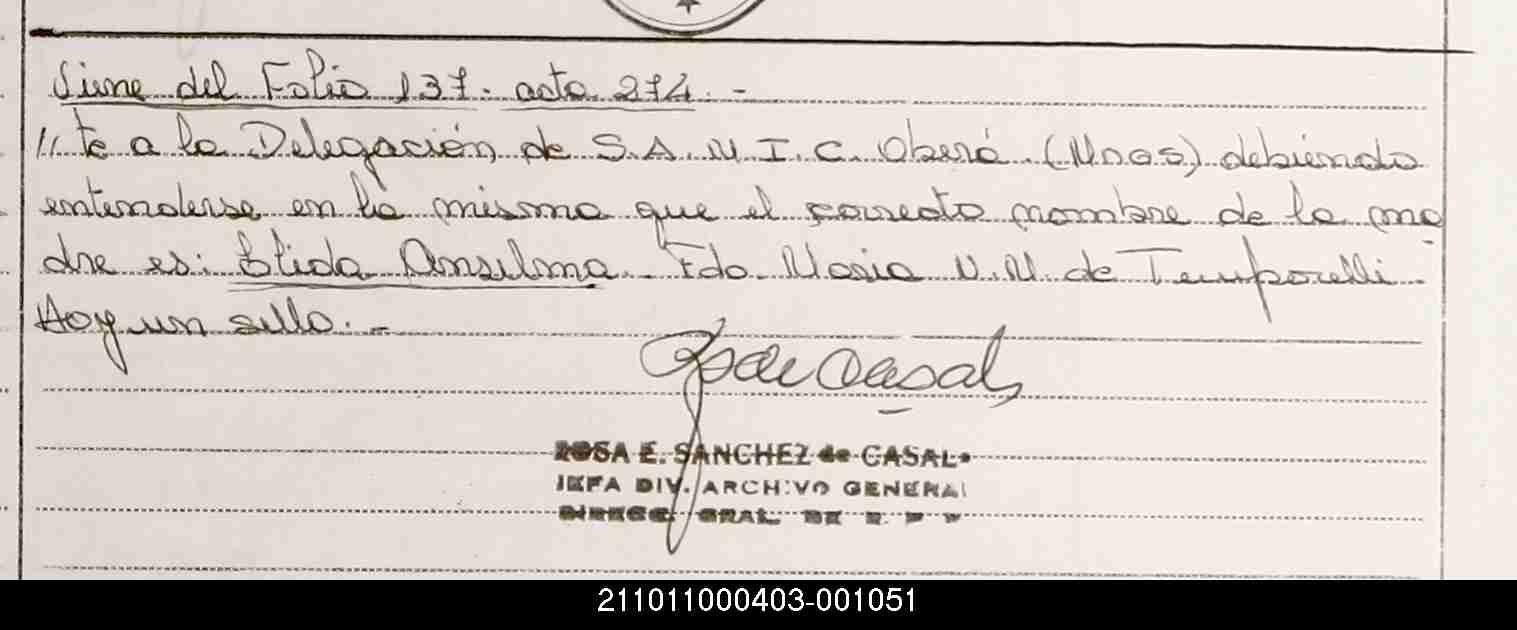 Viene del Folio 137. acta 274. -
// te a la Delegación de S.A.M.I.C. Oberá (Mnes) debiendo
entenderse en la misma que el correcto nombre de la ma
dre es: Elida Anselma. Fdo. Maria N.M. de Temporelli.
Hay un sello. -
R S de Casal
ROSA E. SANCHEZ de CASAL
JEFA DIV. ARCHIVO GENERAL
DIRECC. GRAL. DE R. P. P
211011000403-001051